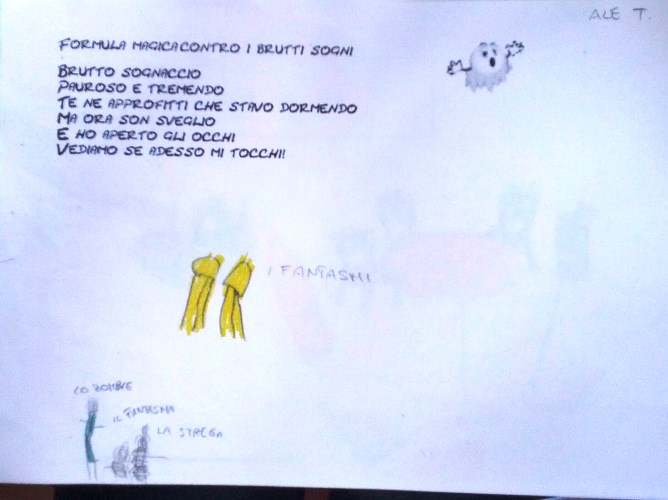 ALE T.
FORMULA MAGICA CONTRO I BRUTTI SOGNI
BRUTTO SOGNACCIO
PAUROSO E TREMENDO
TE NE APPROFITTI CHE STAVO DORMENDO
MA ORA SON SVEGLIO
E HO APERTO GLI OCCHI
VEDIAMO SE ADESSO MI TOCCHI!
I FANTASMI
LO ZOMBIE
IL FANTASMA
LA STREGA